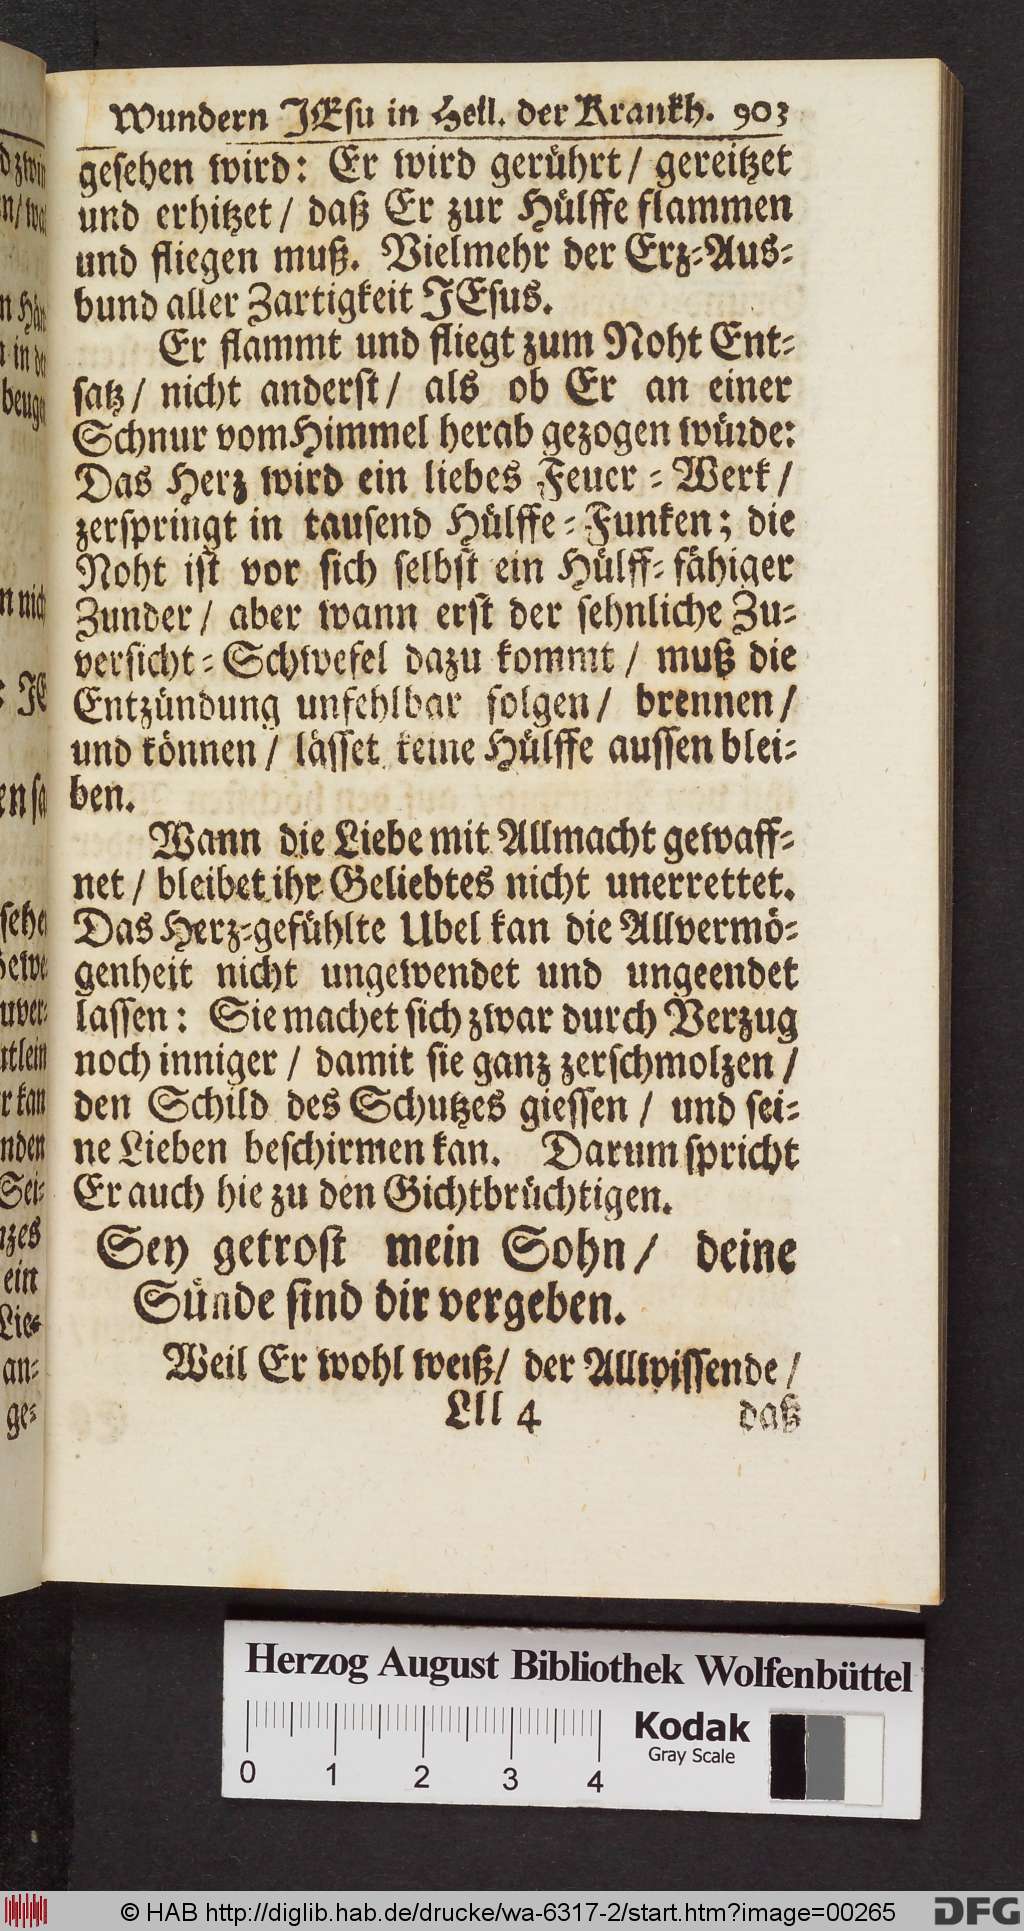 Wundern JEsu in Heil. der Krankh. 903
gesehen wird: Er wird gerührt/ gereitzet
und erhitzet/ daß Er zur Hülffe flammen
und fliegen muß. Vielmehr der Erz-Aus-
bund aller Zartigkeit JEsus.
Er flammt und fliegt zum Noht Ent-
satz/ nicht anderst/ als ob Er an einer
Schnur vom Himmel herab gezogen würde:
Das Herz wird ein liebes Feuer-Werk/
zerspringt in tausend Hülffe-Funken; die
Noht ist vor sich selbst ein Hülff-fähiger
Zunder/ aber wann erst der sehnliche Zu-
versicht-Schwefel dazu kommt/ muß die
Entzündung unfehlbar folgen/ brennen/
und können/ lässet keine Hülffe aussen blei-
ben.
Wann die Liebe mit Allmacht gewaff-
net/ bleibet ihr Geliebtes nicht unerrettet.
Das Herz-gefühlte Ubel kan die Allvermö-
genheit nicht ungewendet und ungeendet
lassen: Sie machet sich zwar durch Verzug
noch inniger/ damit sie ganz zerschmolzen/
den Schild des Schutzes giessen/ und sei-
ne Lieben beschirmen kan. Darum spricht
Er auch hie zu den Gichtbrüchtigen.
Sey getrost mein Sohn/ deine
Sünde sind dir vergeben.
Weil Er wohl weiß/ der Allwissende/
Lll 4 daß
Herzog August Bibliothek Wolfenbüttel
Kodak
Gray Scale
0 1 2 3 4
© HAB http://diglib.hab.de/drucke/wa-6317-2/start.htm?image=00265
DFG